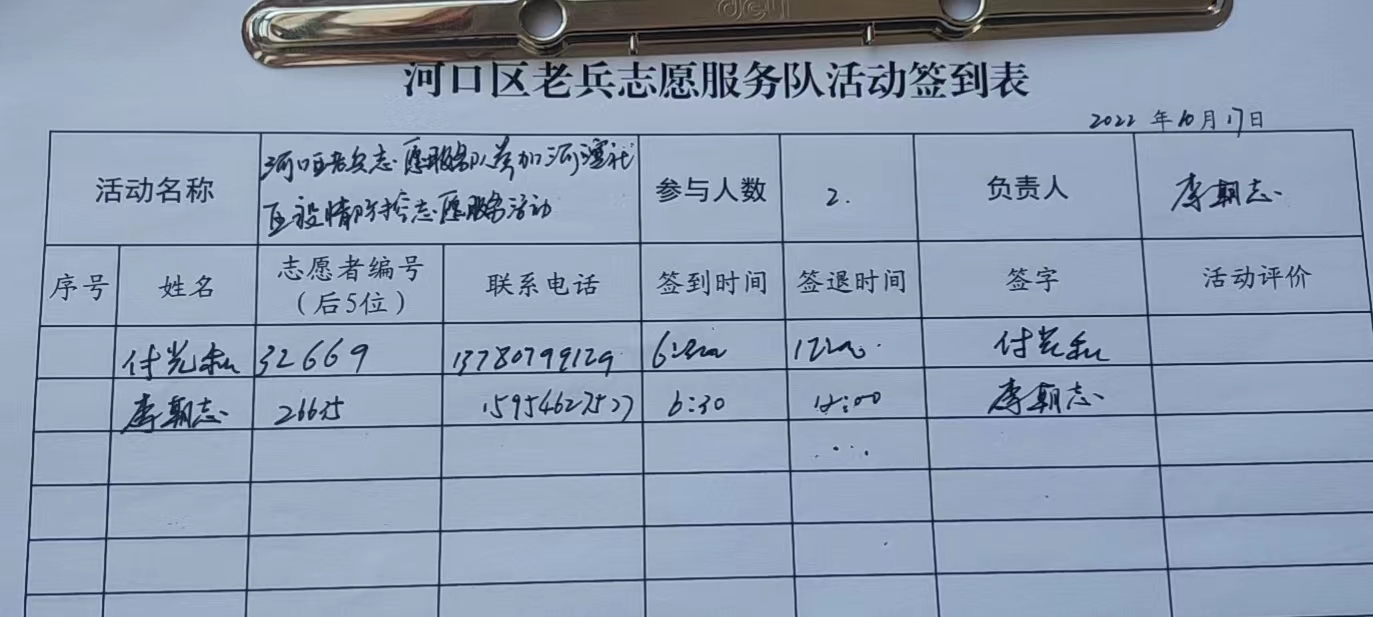 deli
河口区老兵志愿服务队活动签到表
2022 年 10 月 17 日
活动名称 河口区老兵志愿服务队参加河滨社 参与人数 2. 负责人 李朝志
区疫情防控志愿服务活动
序号 姓名 志愿者编号 联系电话 签到时间 签退时间 签字 活动评价
（后5位）
付光和 32669 13780799129 付光和
李朝志 26635 15954627527 6:30 12:00 李朝志